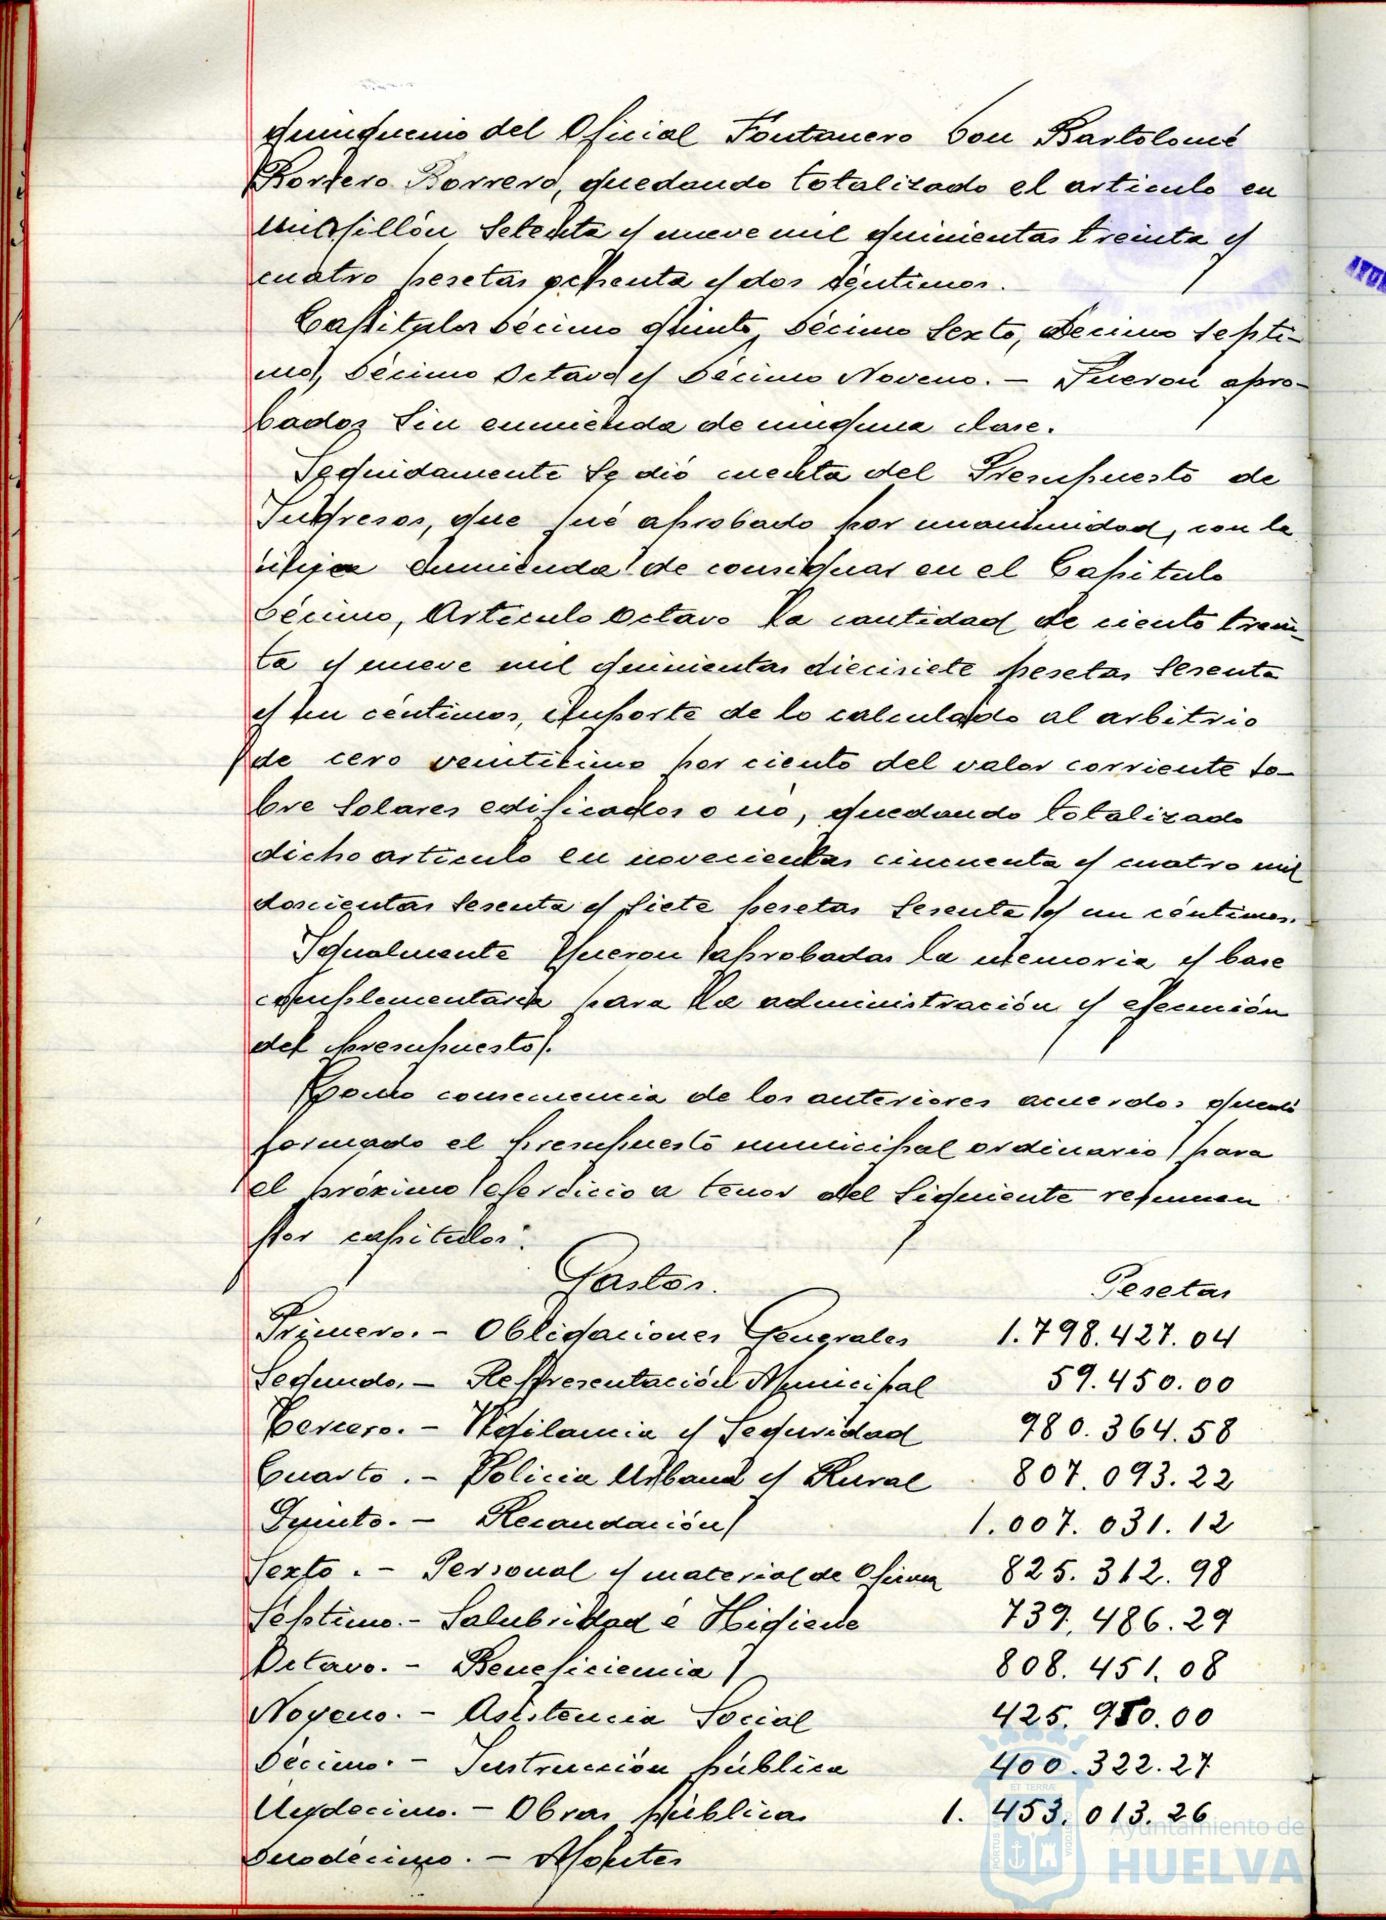 quinquenio del Oficial Fontanero Don Bartolomé
Borrero Borrero, quedando totalizado el articulo en
un millón setenta y nueve mil quinientas treinta y
cuatro pesetas ochenta y dos céntimos.
Capitulos Décimo quinto, Décimo Sexto, Décimo Septi-
mo, Décimo Octavo y Décimo Noveno. - Fueron apro-
bados sin enmienda de ninguna clase.
Seguidamente se dió cuenta del Presupuesto de
Ingresos, que fué aprobado por unanimidad, con la
única enmienda de consignar en el Capitulo
Décimo, Articulo Octavo la cantidad de ciento trein-
ta y nueve mil quinientas diecisiete pesetas sesenta
y un céntimos, importe de lo calculado al arbitrio
de cero veinticinco por ciento del valor corriente so-
bre solares edificados o nó, quedando totalizado
dicho articulo en novecientas cincuenta y cuatro mil
doscientas sesenta y siete pesetas sesenta y un céntimos.
Igualmente fueron aprobadas la memoria y base
complementaria para la administración y ejecución
del presupuesto.
Como consecuencia de los anteriores acuerdos quedó
formado el presupuesto municipal ordinario para
el próximo ejercicio a tenor del siguiente resumen
por capitulos:
Gastos. Pesetas
Primero. - Obligaciones Generales 1.798.427.04
Segundo. - Representación Municipal 59.450.00
Tercero. - Vigilancia y Seguridad 980.364.58
Cuarto. - Policia Urbana y Rural 807.093.22
Quinto. - Recaudación 1.007.031.12
Sexto. - Personal y material de Oficina 825.312.98
Séptimo. - Salubridad é Higiene 739.486.29
Octavo. - Beneficiencia 808.451.08
Noveno. - Asistencia Social 425.950.00
Décimo. - Instrucción pública 400.322.27
Undecimo. - Obras públicas 1.453.013.26
Duodécimo. - Montes
Ayuntamiento de
HUELVA